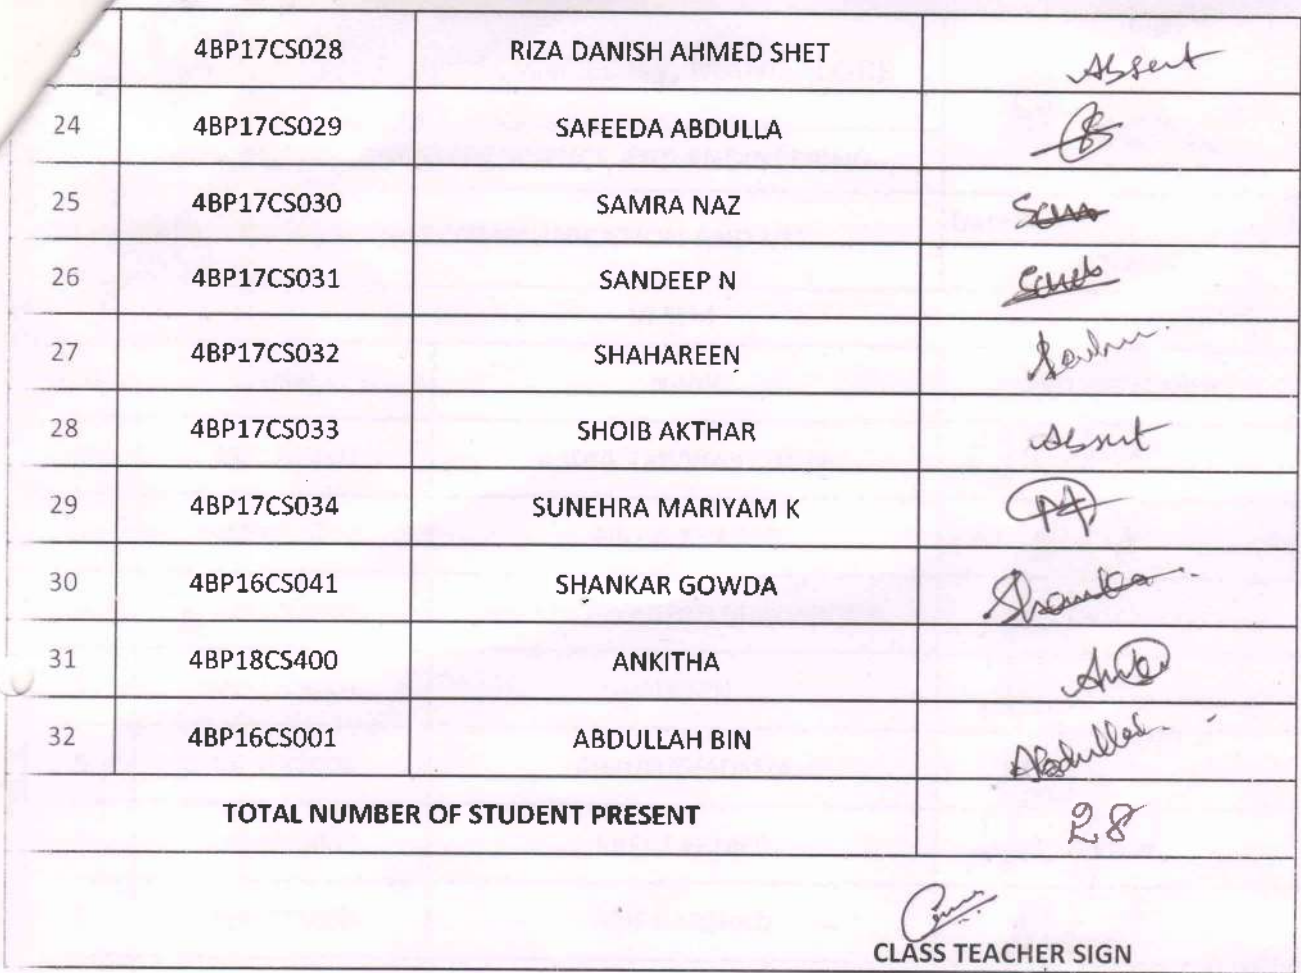 3 4BP17CS028 RIZA DANISH AHMED SHET Absent
24 4BP17CS029 SAFEEDA ABDULLA
25 4BP17CS030 SAMRA NAZ
26 4BP17CS031 SANDEEP N
27 4BP17CS032 SHAHAREEN
28 4BP17CS033 SHOIB AKTHAR Absent
29 4BP17CS034 SUNEHRA MARIYAM K
30 4BP16CS041 SHANKAR GOWDA
31 4BP18CS400 ANKITHA
32 4BP16CS001 ABDULLAH BIN Abdullah
TOTAL NUMBER OF STUDENT PRESENT 28
CLASS TEACHER SIGN